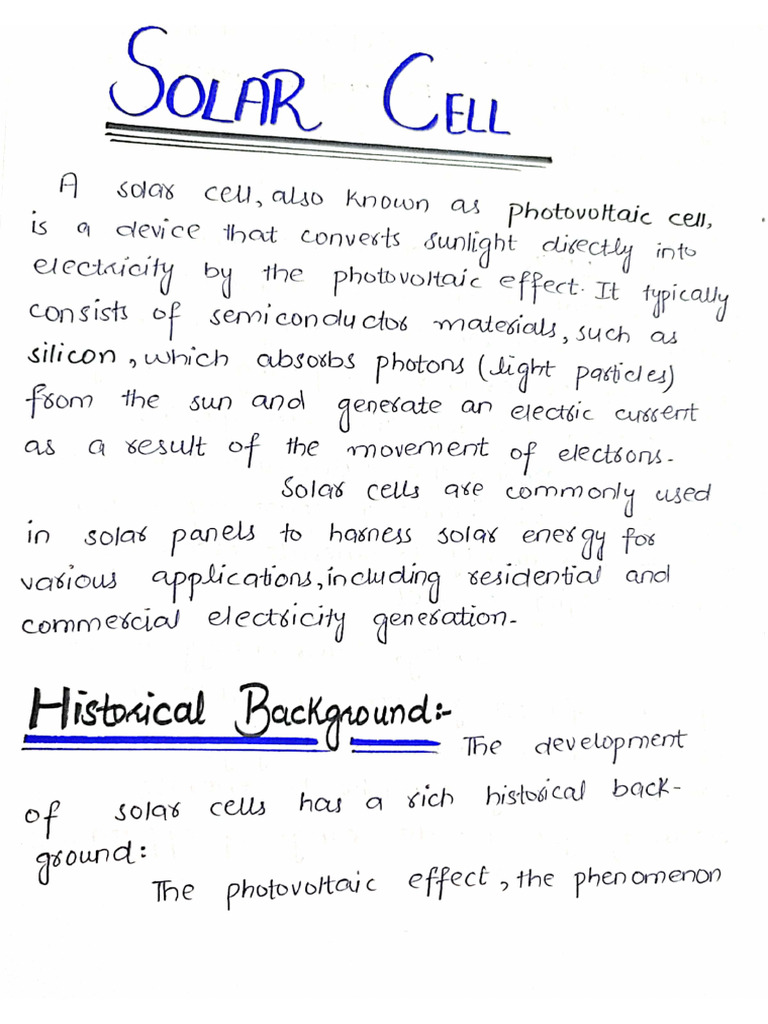 SOLAR CELL
A solar cell, also known as photovoltaic cell,
is a device that converts sunlight directly into
electricity by the photovoltaic effect. It typically
consists of semiconductor materials, such as
silicon, which absorbs photons (light particles)
from the sun and generate an electric current
as a result of the movement of electrons.
Solar cells are commonly used
in solar panels to harness solar energy for
various applications, including residential and
commercial electricity generation.
Historical Background:-
The development
of solar cells has a rich historical back-
ground:
The photovoltaic effect, the phenomenon